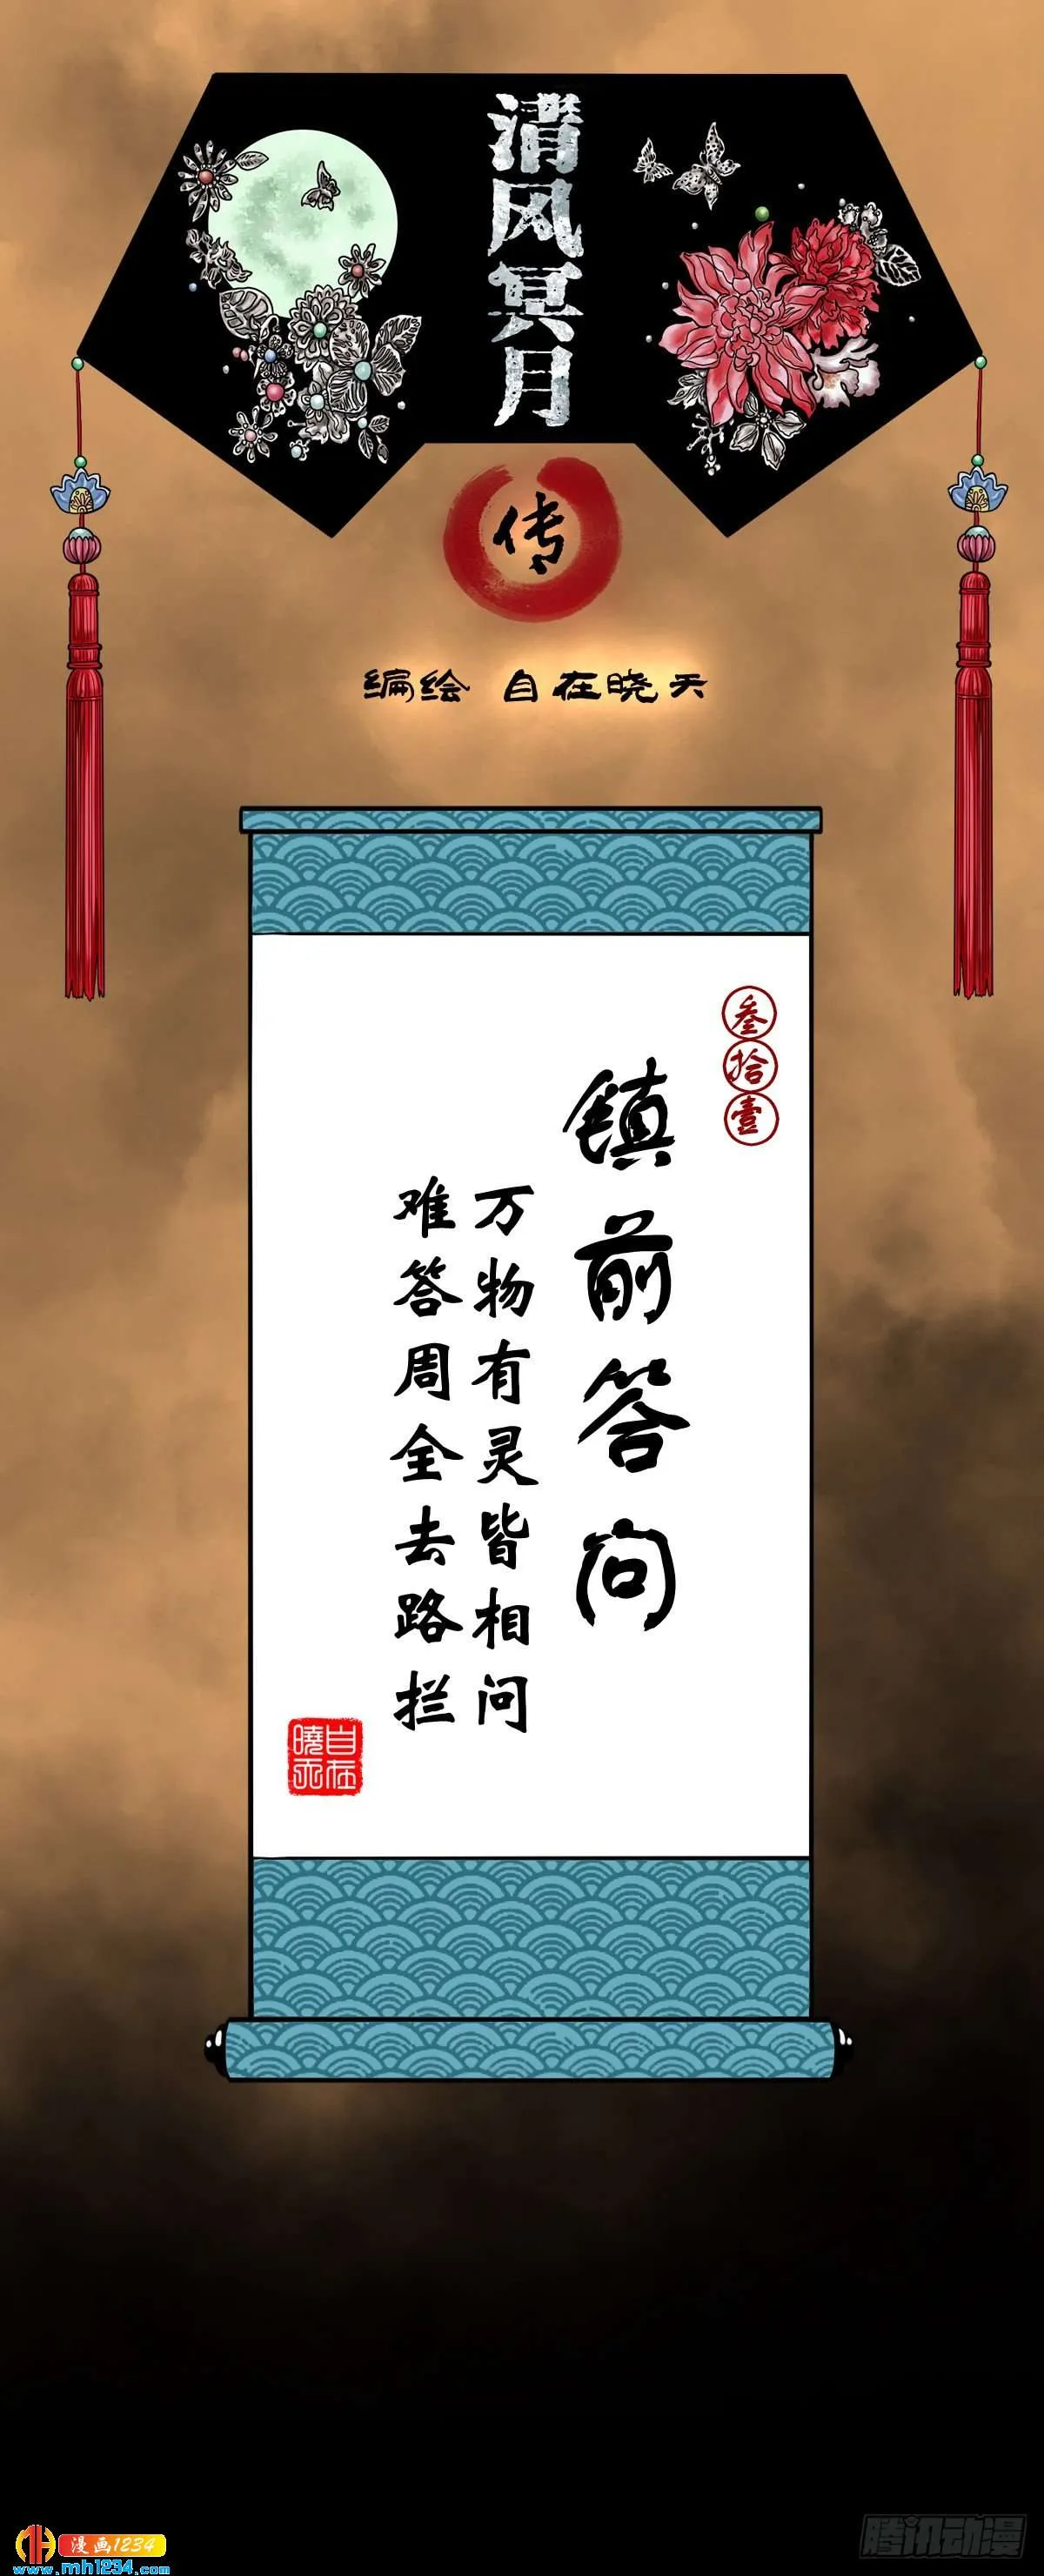 清风冥月
传
编绘 自在晓天
叁拾壹
镇前答问
万物有灵皆相问
难答周全去路拦
自在
曉天
漫画1234
www.mh1234.com
腾讯动漫